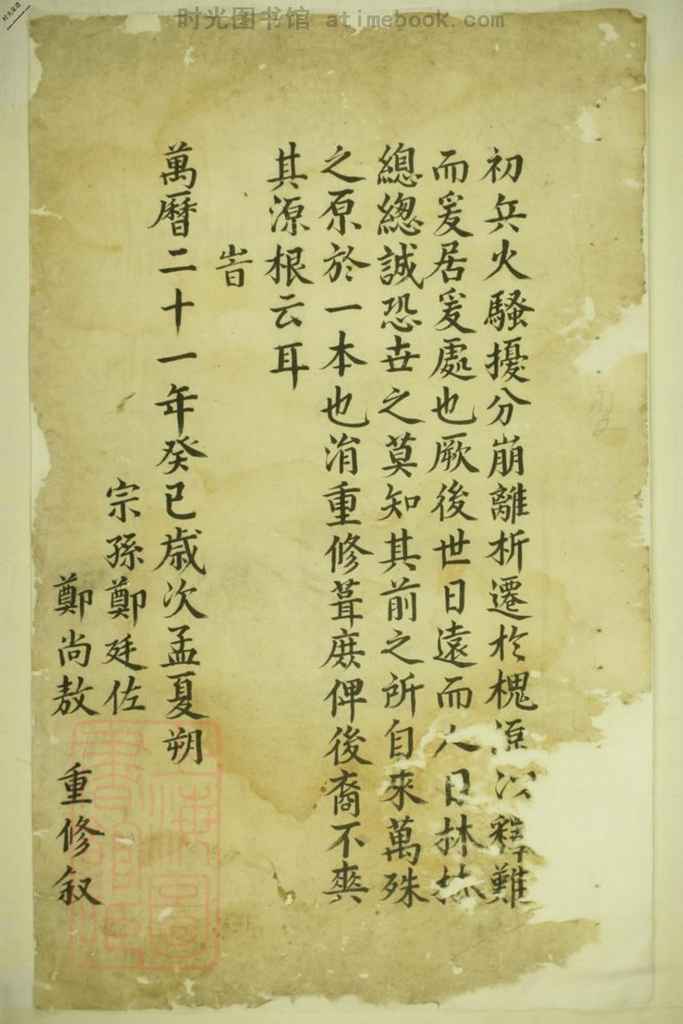 时光图书馆 atimebook.com
初兵火騷擾分崩離析遷於槐源以釋難
而爰居爰處也厥後世日遠而人日林林
總總誠恐世之莫知其前之所自來萬殊
之原於一本也涓重修葺庶俾後裔不爽
其源根云耳
旹
萬曆二十一年癸巳歲次孟夏朔
宗孫鄭廷佐
鄭尚敖
重修叙